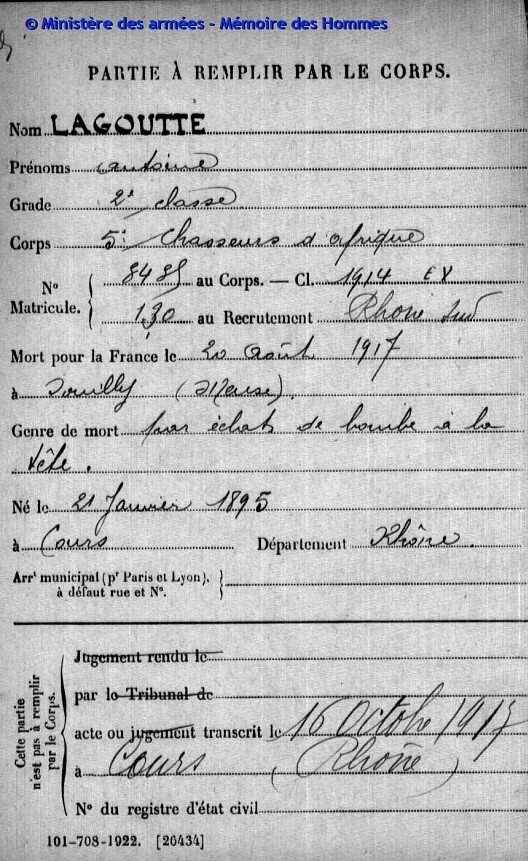 © Ministère des armées - Mémoire des Hommes
PARTIE À REMPLIR PAR LE CORPS.
Nom LAGOUTTE
Prénoms antoine
Grade 2e classe
Corps 5e Chasseurs d'afrique
N° Matricule. 8485 au Corps. — Cl. 1914 EV
130 au Recrutement Rhône Sud
Mort pour la France le 20 Août 1917
à Souilly (Meuse).
Genre de mort par éclats de bombe à la
tête.
Né le 21 Janvier 1895
à Cours Département Rhône.
Arrt municipal (pr Paris et Lyon),
à défaut rue et N°.
Cette partie n'est pas à remplir par le Corps.
Jugement rendu le
par le Tribunal de
acte ou jugement transcrit le 16 Octobre 1917
à Cours (Rhône)
N° du registre d'état civil
101-708-1922. [26434]